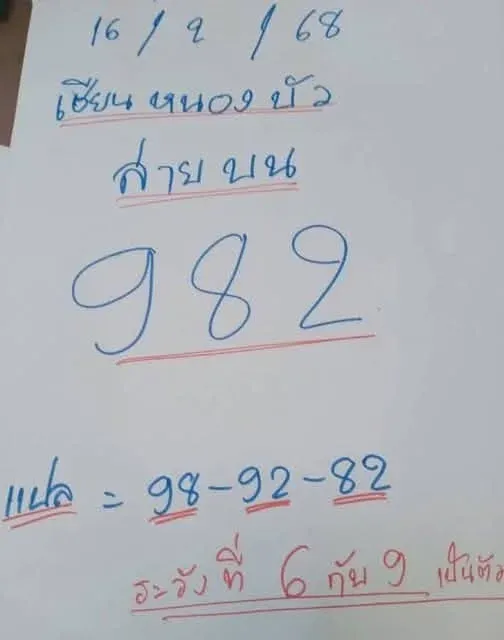 16 / 2 / 68
เซียนหนองบัว
สายบน
982
แปล = 98-92-82
ระวังที่ 6 กับ 9 เป็นตัว